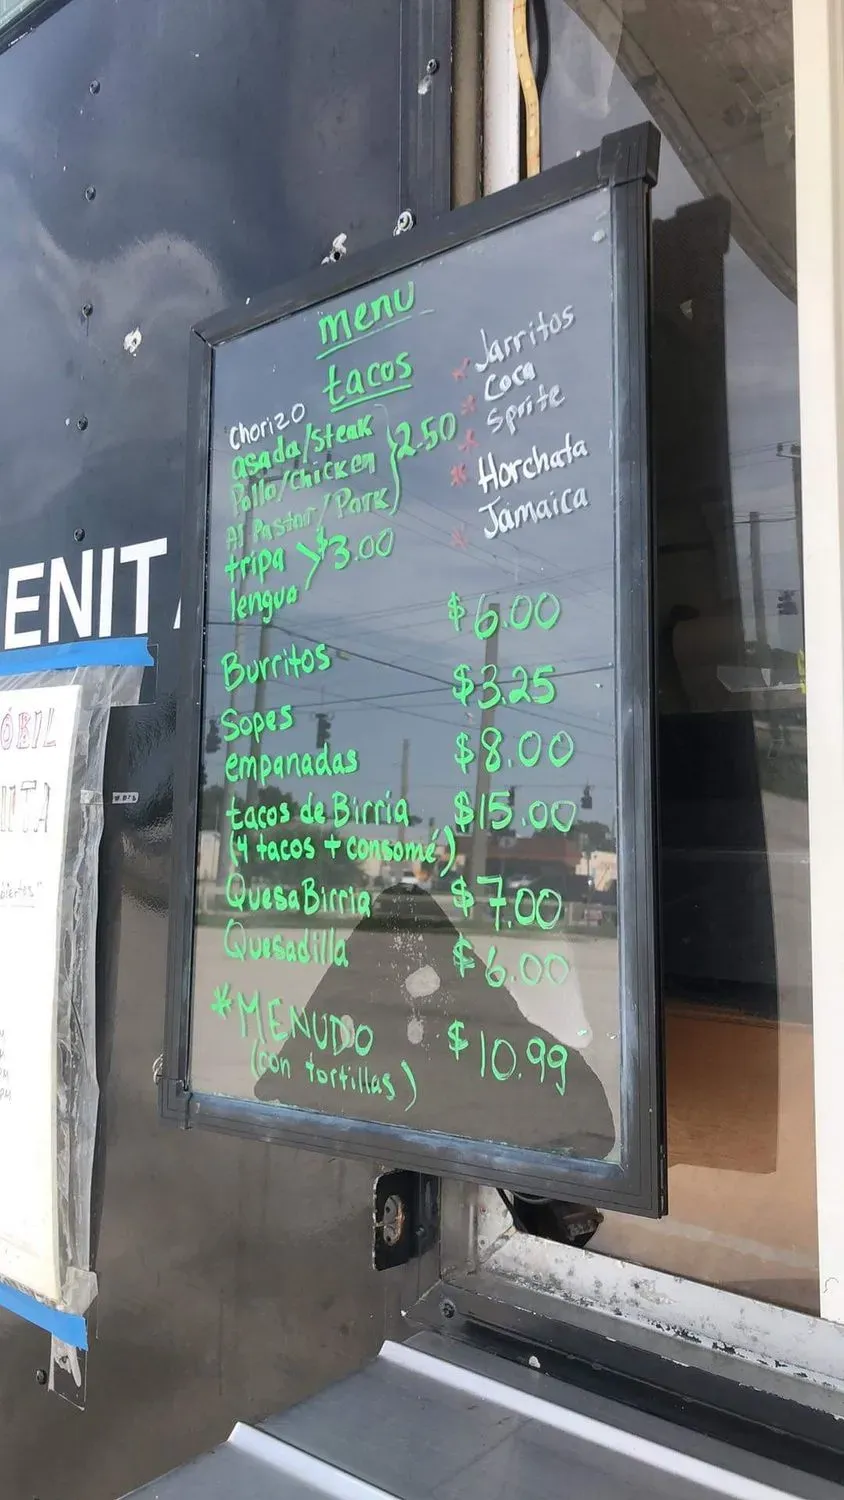 menu
tacos
Chorizo
asada/steak
Pollo/chicken
Al Pastor/Pork
2.50
tripa
lengua
$3.00
* Jarritos
* Coca
* Sprite
* Horchata
* Jamaica
Burritos $6.00
Sopes $3.25
empanadas $8.00
tacos de Birria $15.00
(4 tacos + consomé)
QuesaBirria $7.00
Quesadilla $6.00
*MENUDO $10.99
(con tortillas)
ENIT